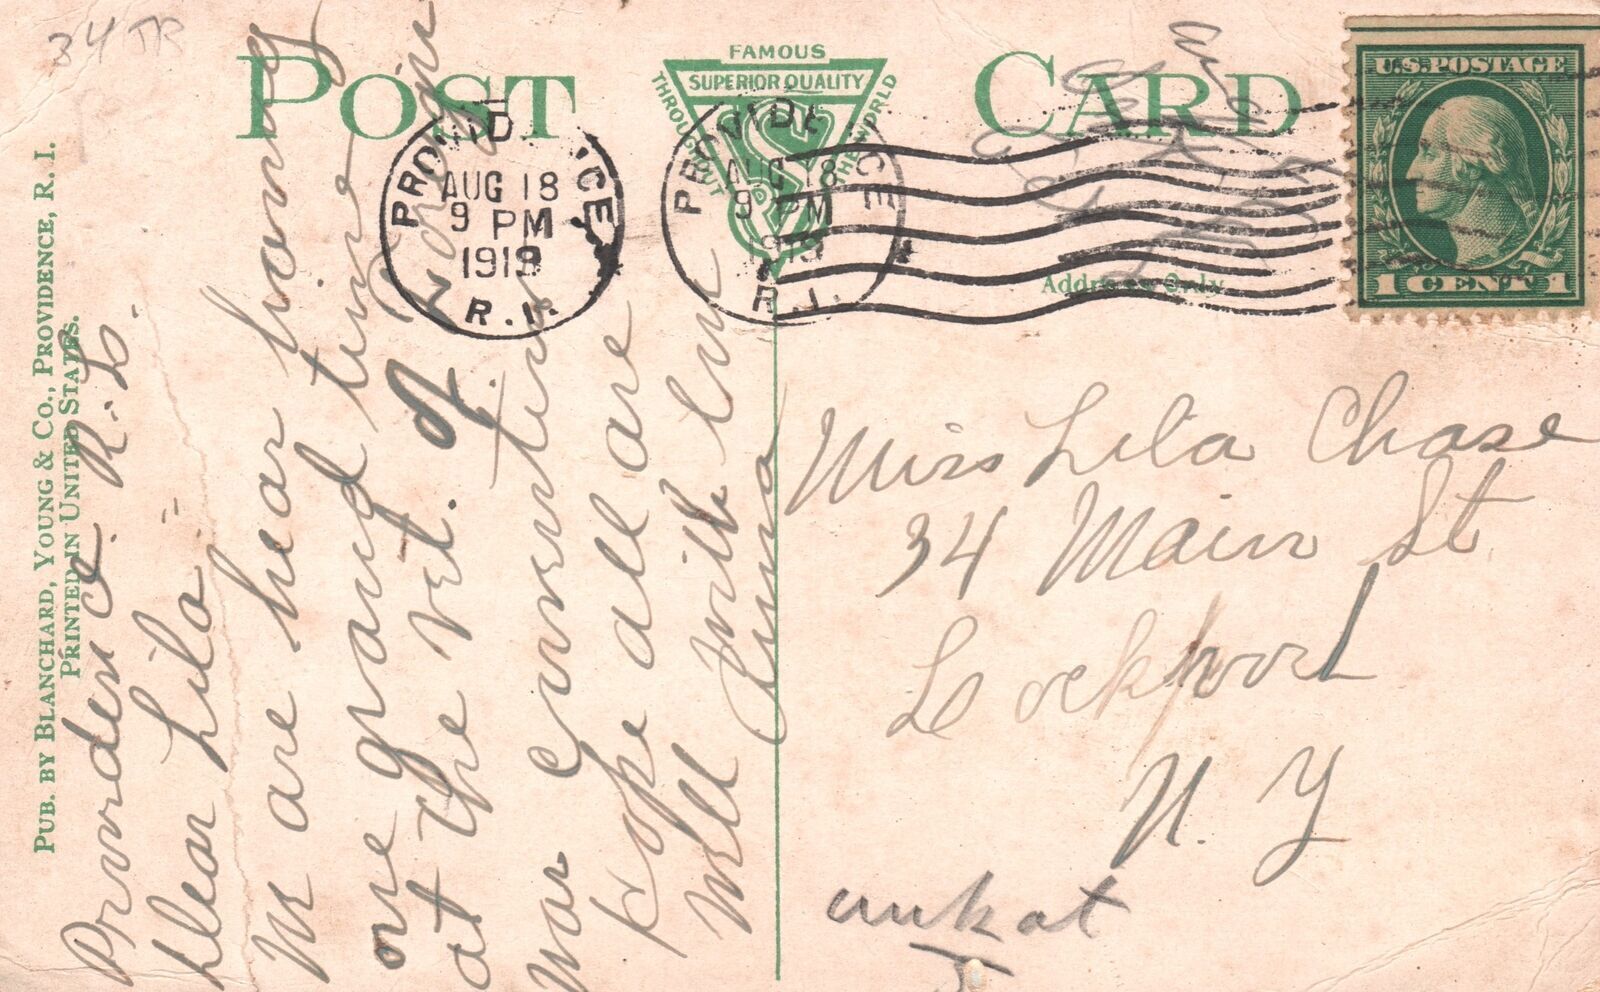 34 JR
POST CARD
FAMOUS
SUPERIOR QUALITY
THROUGHOUT
THE WORLD
PROVIDENCE
AUG 18
9 PM
1919
R.I.
PROVIDENCE
AUG 18
9 PM
1919
R.I.
U.S. POSTAGE
1 CENT 1
Address Only
PUB. BY BLANCHARD, YOUNG & CO., PROVIDENCE, R. I.
PRINTED IN UNITED STATES.
Providence. R. I.
Dear Lila:-
We are hear haveing
one grand time
at the vet. of Foreign
war Convention
Hope all are
Well With love
Miss Lila Chase
34 Main St
Lockport
N. Y
unk at